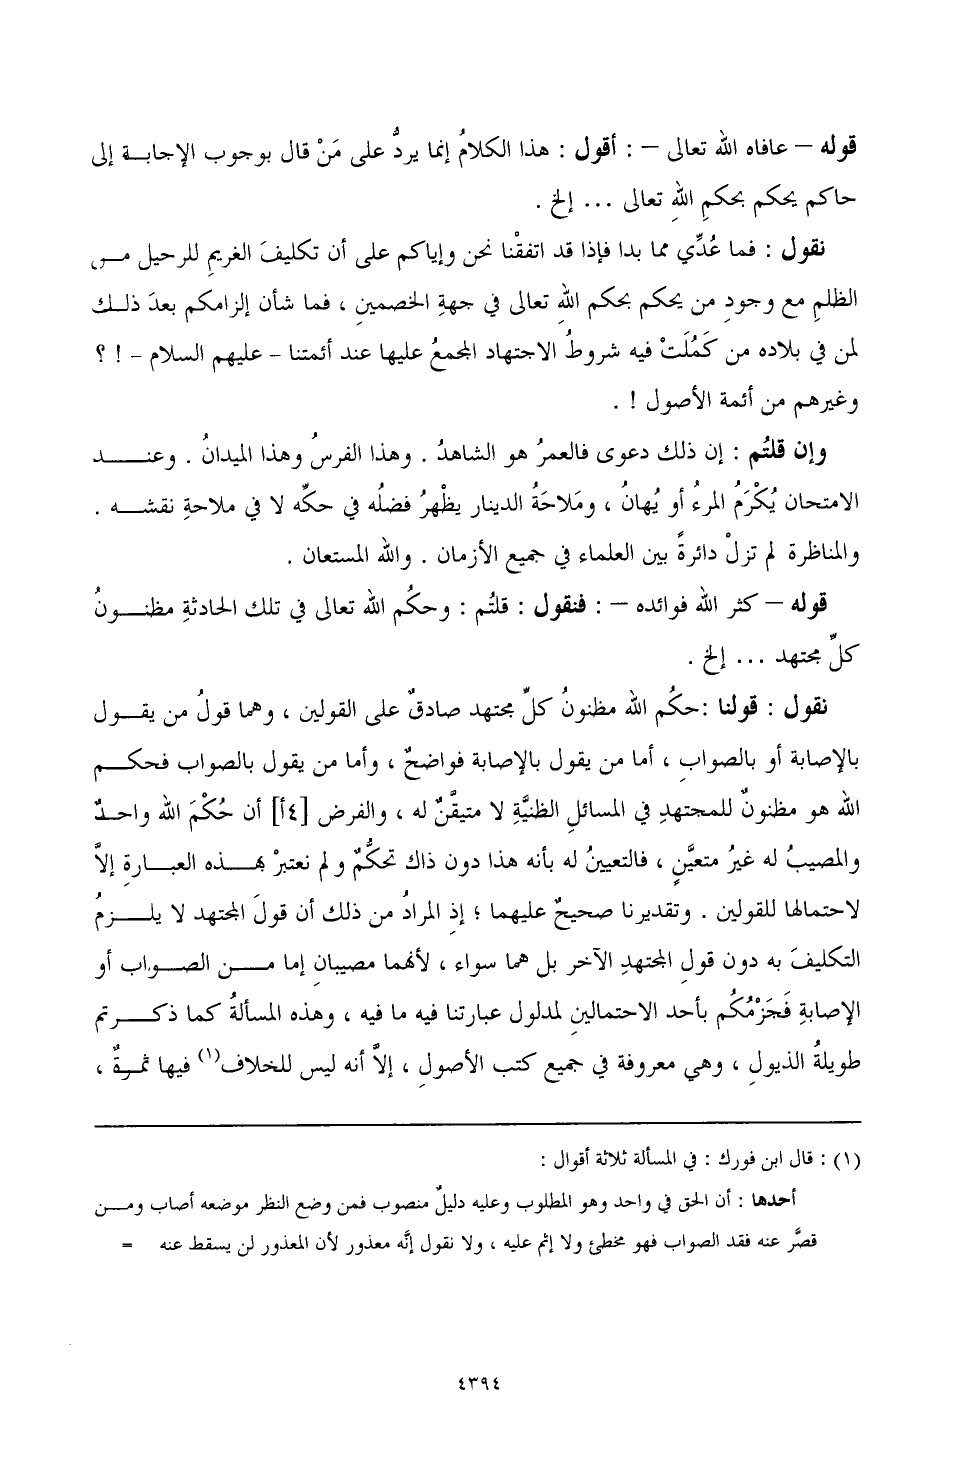 قوله – عافاه الله تعالى – : أقول : هذا الكلامُ إنما يردُّ على مَنْ قال بوجوب الإجابة إلى
حاكم يحكم بحكمِ اللهِ تعالى ... إلخ .
نقول : فما عُدِّي مما بدا فإذا قد اتفقْنا نحن وإياكم على أن تكليفَ الغريمِ للرحيل من
الظلمِ مع وجودِ من يحكم بحكم اللهِ تعالى في جهةِ الخصمينِ ، فما شأن إلزامكم بعدَ ذلك
لمن في بلاده من كَمُلَتْ فيه شروطُ الاجتهاد المجمعُ عليها عند أئمتنا – عليهم السلام – ! ؟
وغيرهم من أئمة الأصول ! .
وإن قلتُم : إن ذلك دعوى فالعمرُ هو الشاهدُ . وهذا الفرسُ وهذا الميدانُ . وعند
الامتحان يُكْرَمُ المرءُ أو يُهانُ ، ومَلاحَةُ الدينار يظْهرُ فضلُه في حكِّه لا في ملاحةِ نقشه .
والمناظرة لم تزلْ دائرةً بين العلماء في جميع الأزمان . والله المستعان .
قوله – كثر الله فوائده – : فنقول : قلتُم : وحكُم الله تعالى في تلك الحادثةِ مظنونُ
كلِّ مجتهد ... إلخ .
نقول : قولنا :حكُم الله مظنونُ كلِّ مجتهد صادقٌ على القولين ، وهما قولُ من يقول
بالإصابة أو بالصوابِ ، أما من يقول بالإصابة فواضحٌ ، وأما من يقول بالصواب فحكم
الله هو مظنونٌ للمجتهدِ في المسائلِ الظنيَّةِ لا متيقَّنٌ له ، والفرض [٤أ] أن حُكْمَ الله واحدٌ
والمصيبُ له غيرُ متعيَّنٍ ، فالتعيينُ له بأنه هذا دون ذاك تحكُّمٌ ولم نعتبرْ بهذه العبارةِ إلاَّ
لاحتمالها للقولين . وتقديرنا صحيحٌ عليهما ؛ إذِ المرادُ من ذلك أن قولَ المجتهد لا يلزمُ
التكليفَ به دون قولِ المجتهدِ الآخر بل هما سواء ، لأنهما مصيبانِ إما من الصواب أو
الإصابةِ فَجَزْمُكُم بأحد الاحتمالينِ لمدلول عبارتنا فيه ما فيه ، وهذه المسألةُ كما ذكرتم
طويلةُ الذيولِ ، وهي معروفة في جميع كتب الأصولِ ، إلاَّ أنه ليس للخلاف(١) فيها ثمرةٌ ،
(١) : قال ابن فورك : في المسألة ثلاثة أقوال :
أحدها : أن الحق في واحد وهو المطلوب وعليه دليلٌ منصوب فمن وضع النظر موضعه أصاب ومن
قصَّر عنه فقد الصواب فهو مخطئ ولا إثم عليه ، ولا نقول إنَّه معذور لأن المعذور لن يسقط عنه =
٤٣٩٤